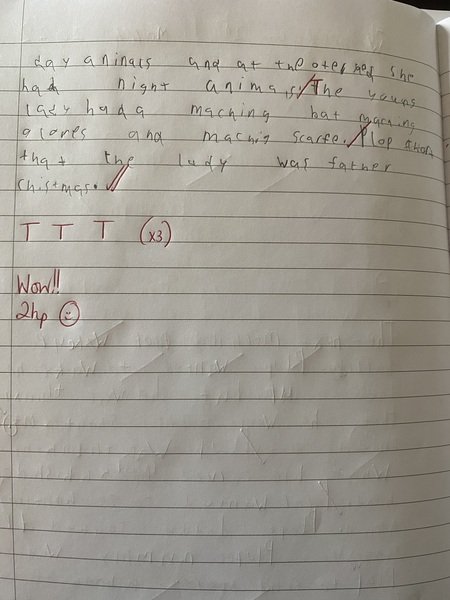 day animals and at the oter hed she
had night animals. The youns
lady had a maching hat maching
gloves and machig scarfe. Plop
that the lady was father
christmas.
T T T (x3)
Wow!!
2hp